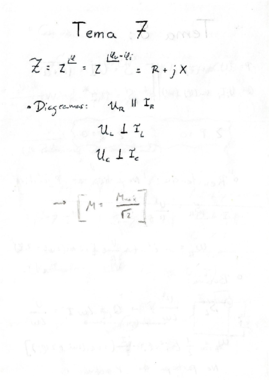 Tema 7
Z̄ = Z∠φ = Z∠φu-φi = R + jX
• Diagramas: U_R || I_R
U_L ⊥ I_L
U_C ⊥ I_C
→ [M = Mmax/√2]